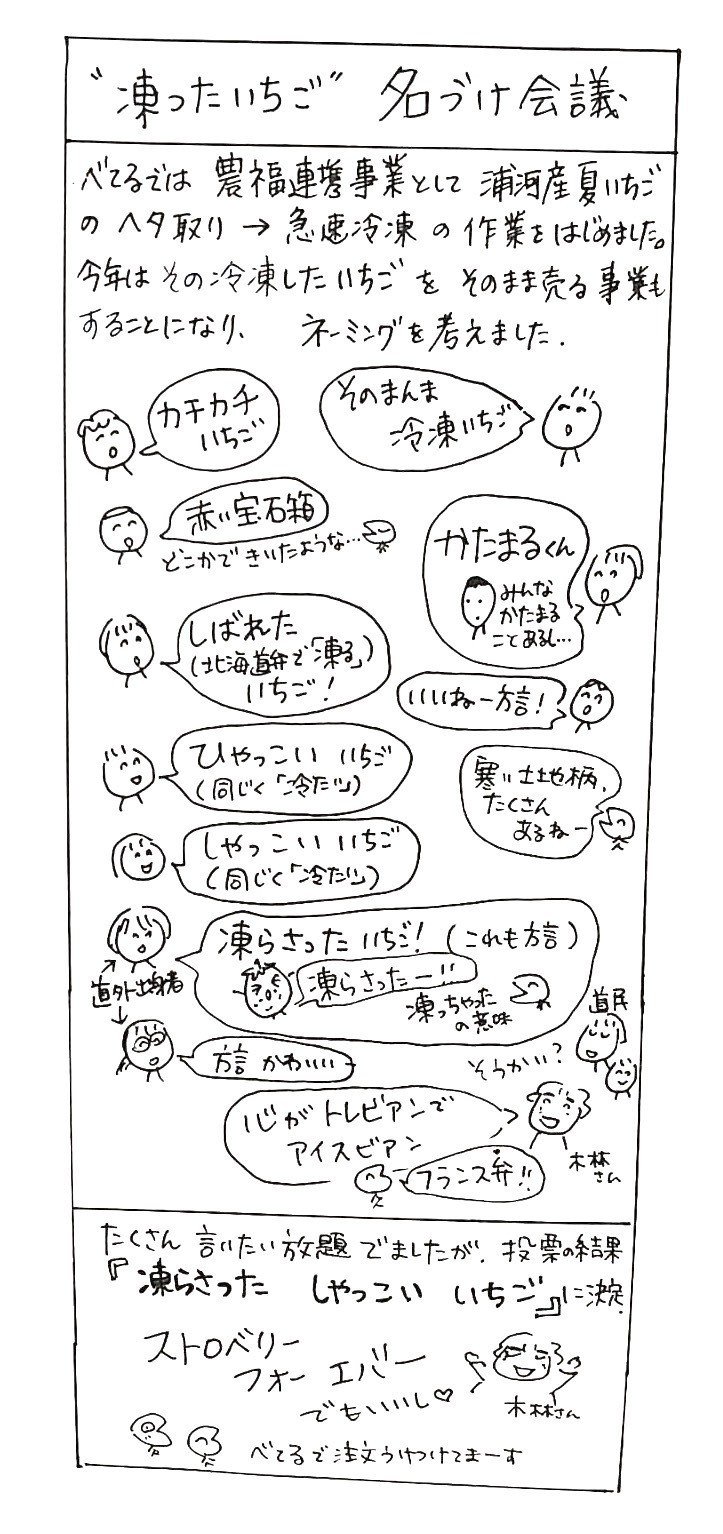 “凍ったいちご” 名づけ会議
べてるでは 農福連携事業として 浦河産夏いちご
の ヘタ取り → 急速冷凍 の 作業をはじめました。
今年は その冷凍したいちごを そのまま売る事業も
することになり、 ネーミングを考えました.
カチカチ
いちご
そのまんま
冷凍いちご
赤い宝石箱
どこかできいたような…
かたまるくん
みんな
かたまる
ことあるし…
しばれた
(北海道弁で「凍る」)
いちご!
いいねー方言!
ひゃっこい いちご
(同じく「冷たい」)
寒い土地柄、
たくさん
あるねー
しゃっこい いちご
(同じく「冷たい」)
凍らさった いちご! (これも方言)
凍らさったー!!
凍っちゃった
の意味
道外出身者
方言 かわいい
道民
そうかい?
心がトレビアンで
アイスビアン
フランス弁!!
木林
さん
たくさん 言いたい放題 でましたが、投票の結果
『凍らさった しゃっこい いちご』に決定.
ストロベリー
フォー エバー
でもいいし♡
木林さん
べてるで注文うけつけてまーす